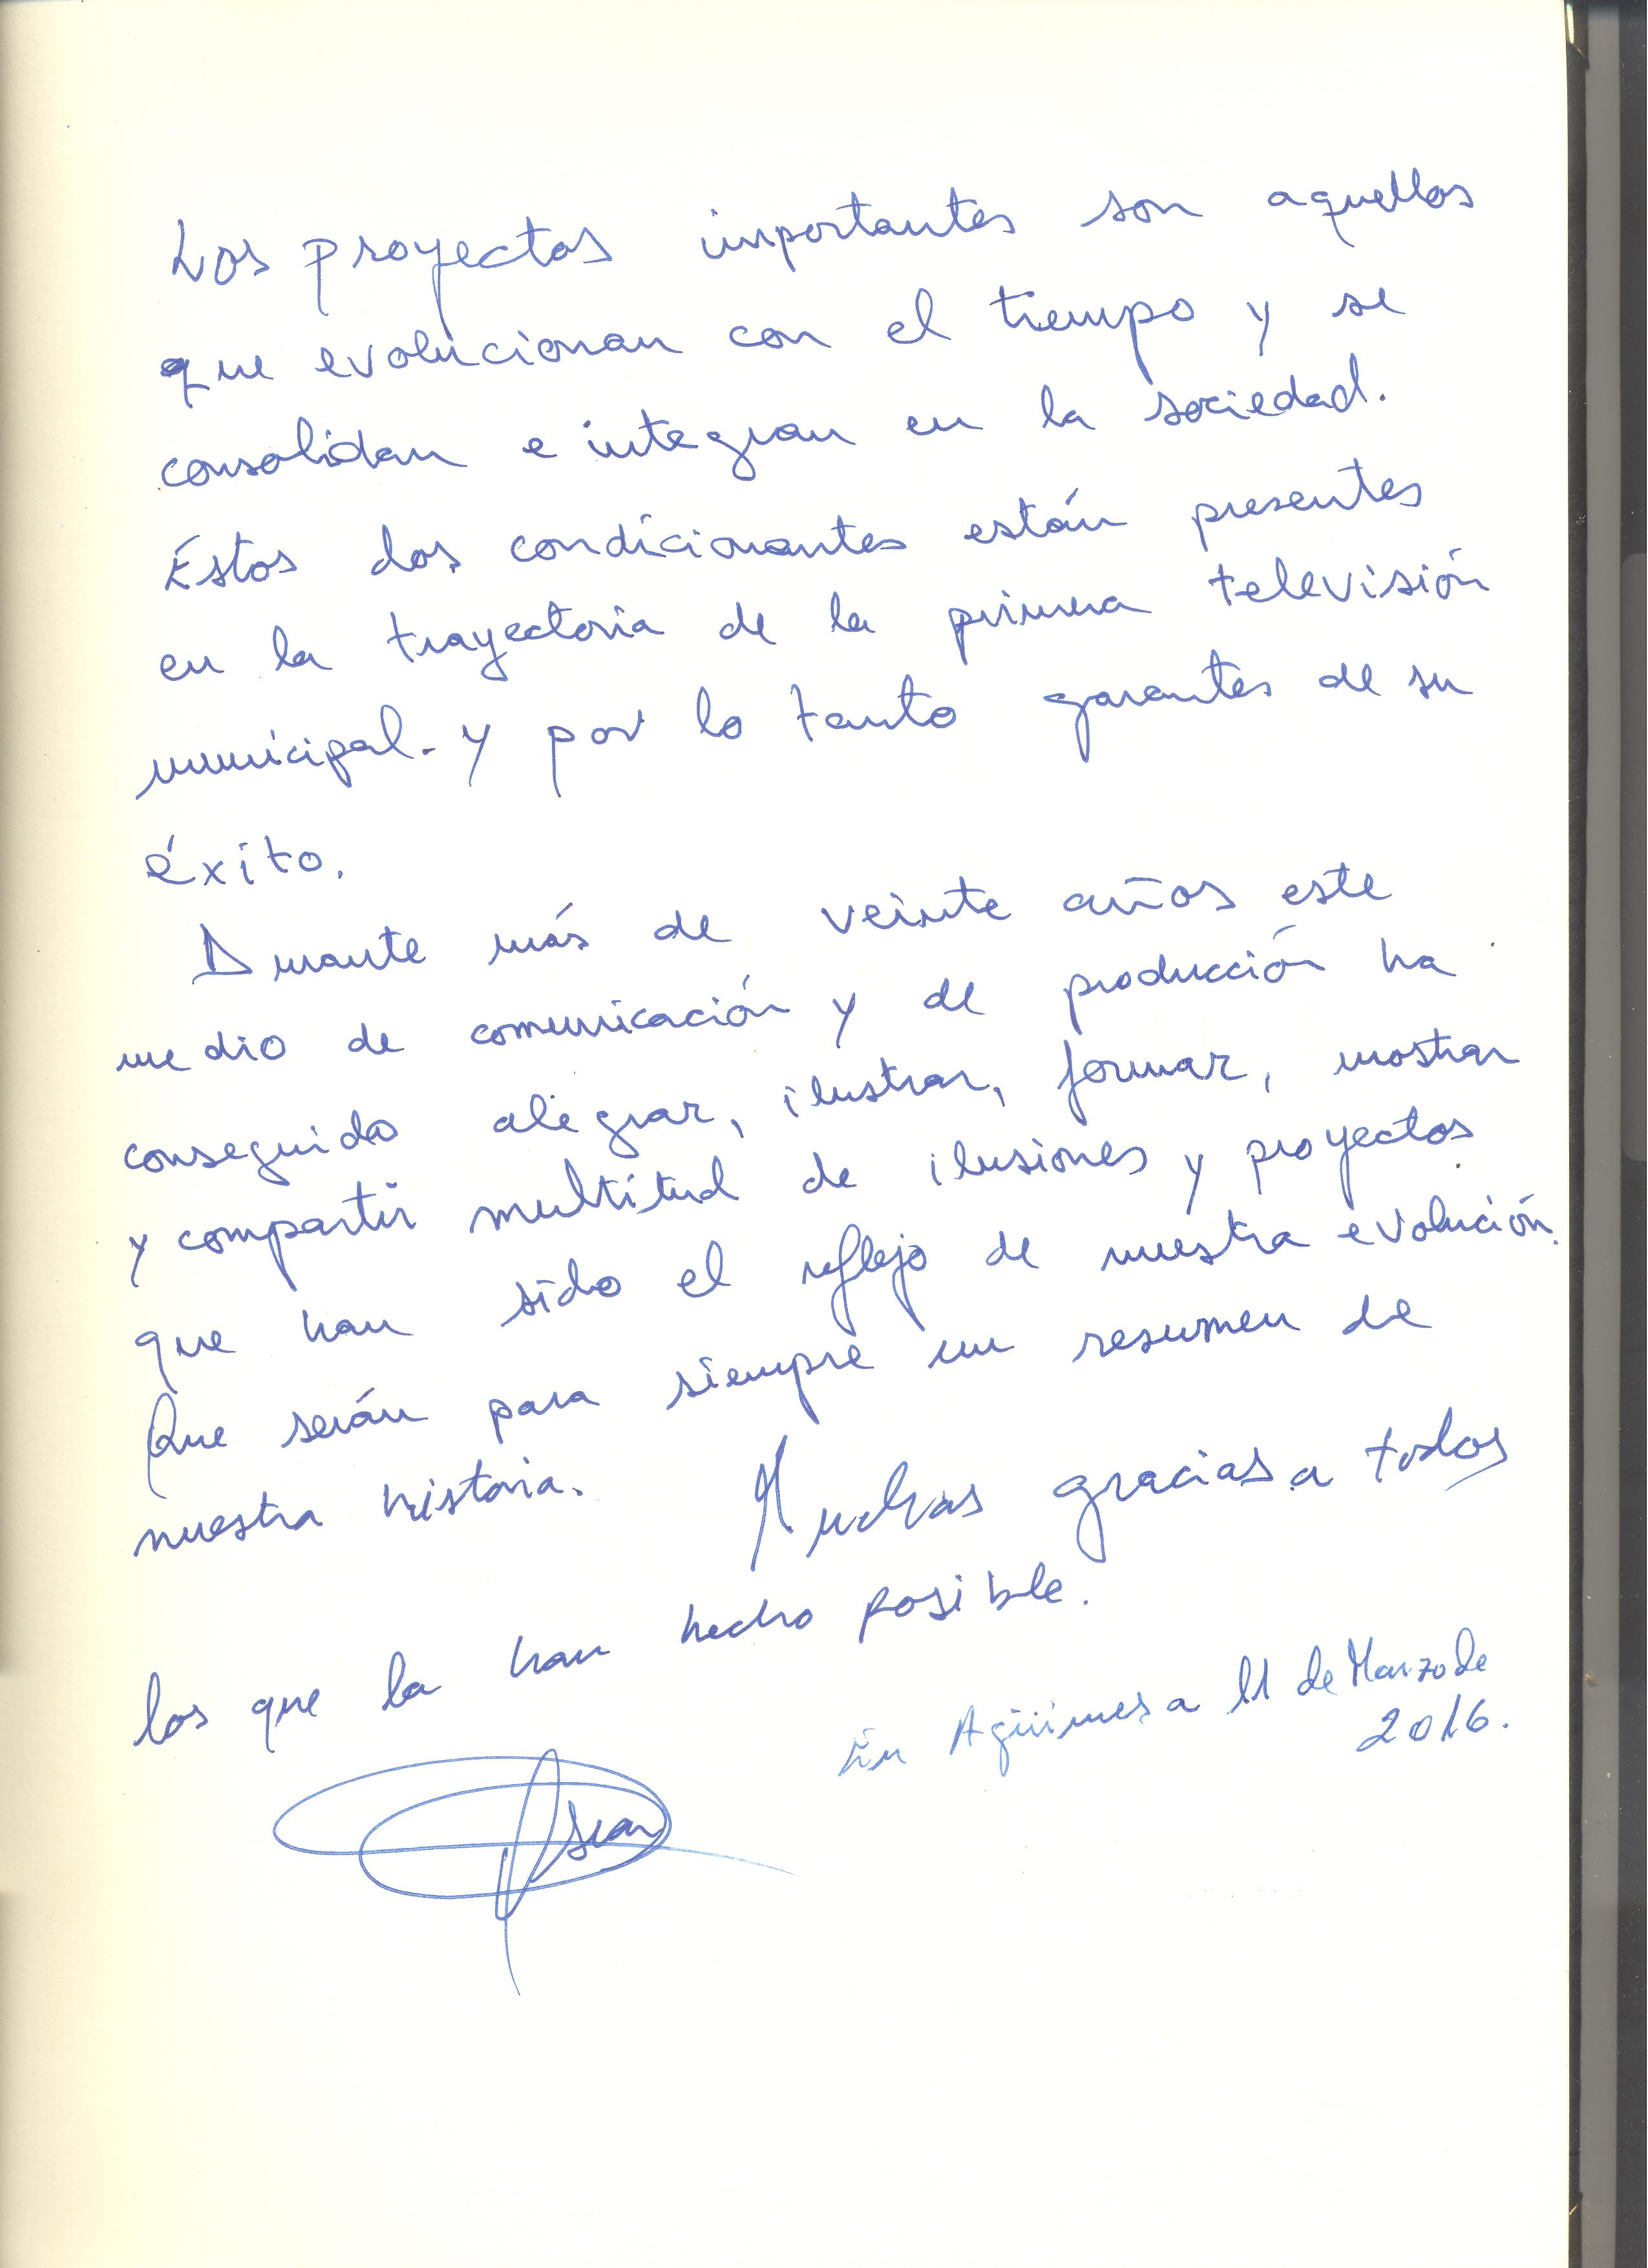 Los proyectos importantes son aquellos
que evolucionan con el tiempo y se
consolidan e integran en la sociedad.
Éstos dos condicionantes están presentes
en la trayectoria de la primera televisión
municipal. y por lo tanto garantes de su
éxito.
Durante más de veinte años este
medio de comunicación y de producción ha
conseguido alegrar, ilustrar, formar, mostrar
y compartir multitud de ilusiones y proyectos
que han sido el reflejo de nuestra evolución.
Que serán para siempre un resumen de
nuestra historia. Muchas gracias a todos
los que la han hecho posible.
En Agüimes a 11 de Marzo de
2016.